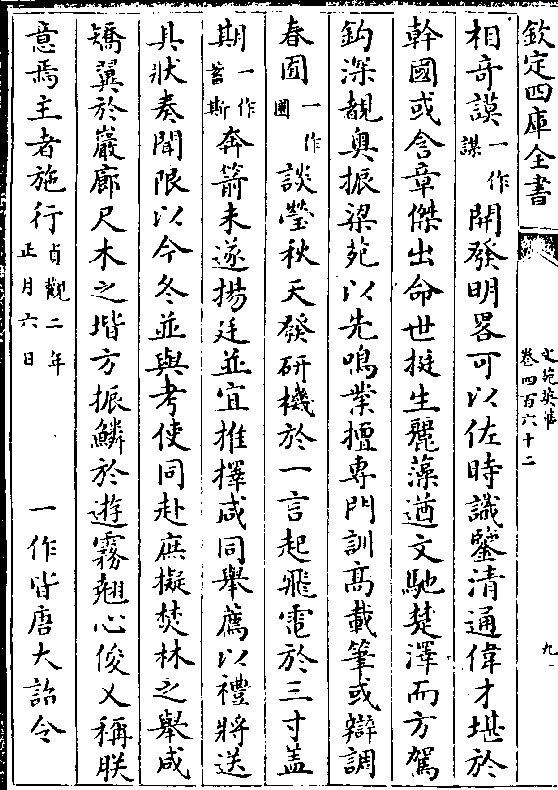 欽定四庫全書
文苑英華
卷四百六十二
九
相奇謨一作謀開發明畧可以佐時識鑒清通偉才堪於
幹國或含章傑出命世挺生麗藻遒文馳楚澤而方駕
鈎深覩奥振梁苑以先鳴業擅專門訓髙載筆或辯調
春囿一作圃談瑩秋天發研機於一言起飛電於三寸盖
期一作蓄斯奔箭未遂揚廷並宜推擇咸同舉薦以禮將送
具狀奏聞限以今冬並與考使同赴庶擬焚林之舉咸
矯翼於巖廊尺木之堦方振鱗於遊霧翹心俊乂稱朕
意焉主者施行貞觀二年正月六日 一作皆唐大詔令